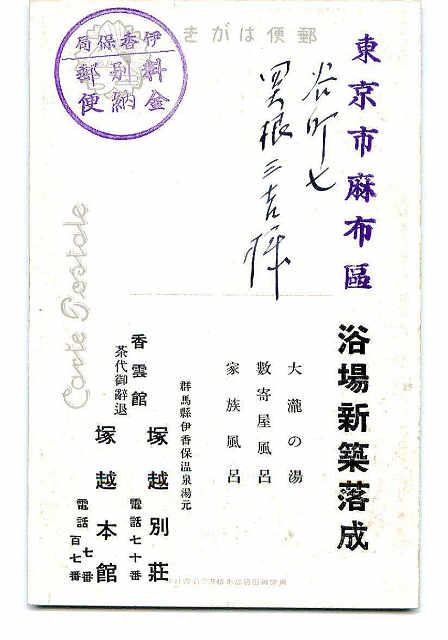 郵便はがき
伊香保局
料金
別納
郵便
東京市麻布區
谷町七
関根三吉様
Carte Postale
浴場新築落成
大瀧の湯
數寄屋風呂
家族風呂
群馬縣伊香保温泉湯元
香雲館 塚越別莊
茶代御辭退 電話七十番
塚越本館
電話 七番
百七番